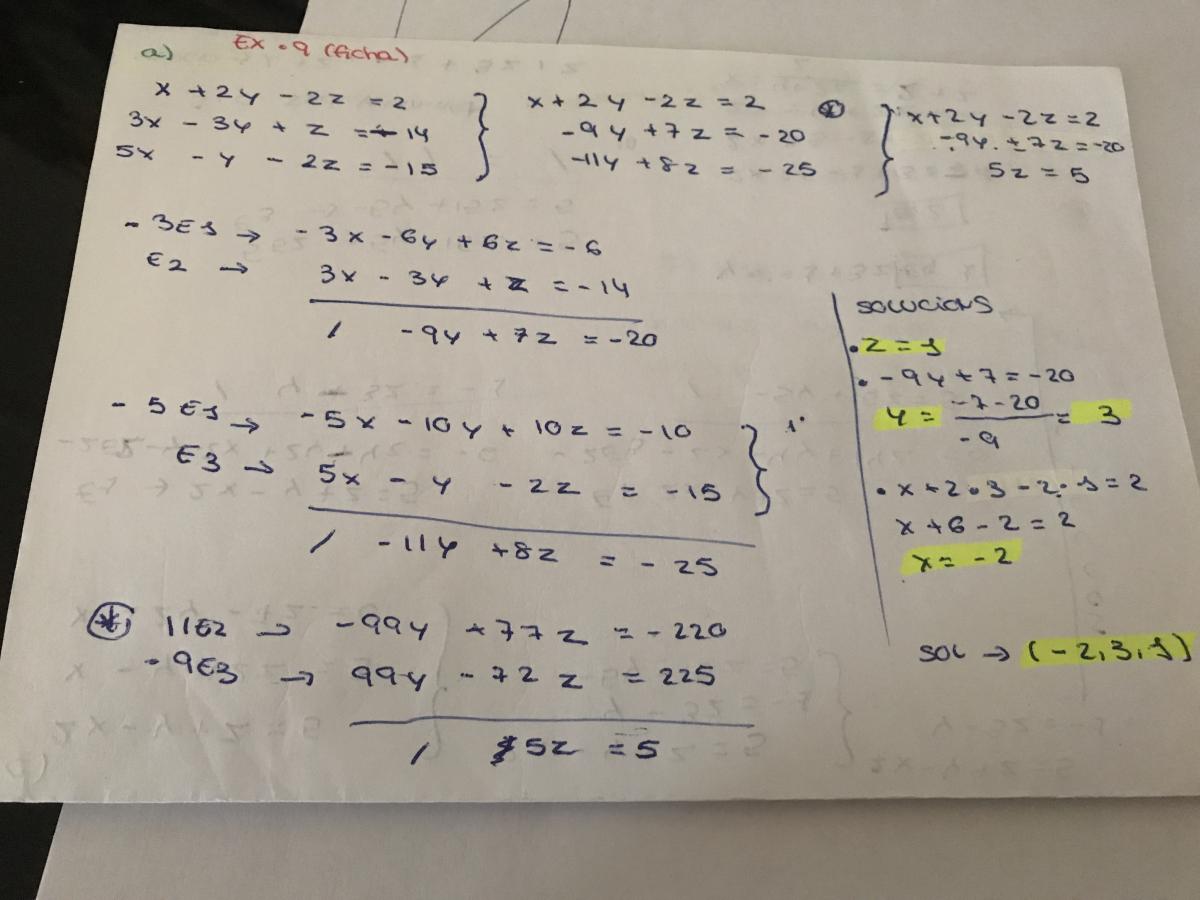 a) EX. 9 (ficha)
x + 2y - 2z = 2
3x - 3y + z = -14
5x - y - 2z = -15
x + 2y - 2z = 2
-9y + 7z = -20
-11y + 8z = -25
x + 2y - 2z = 2
-9y + 7z = -20
5z = 5
- 3E1 → - 3x - 6y + 6z = -6
E2 → 3x - 3y + z = -14
/ -9y + 7z = -20
- 5E1 → -5x - 10y + 10z = -10
E3 → 5x - y - 2z = -15
/ -11y + 8z = -25
* 11E2 → -99y + 77z = -220
- 9E3 → 99y - 72z = 225
/ 5z = 5
SOLUCIONS
• z = 1
• -9y + 7 = -20
y = -7-20 / -9 = 3
• x + 2•3 - 2•1 = 2
x + 6 - 2 = 2
x = -2
SOL → (-2, 3, 1)